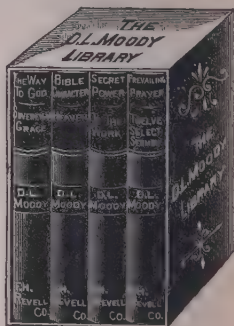 THE
D.L. MOODY
LIBRARY
THE WAY
TO GOD
GRACE
D.L.
MOODY
F.H.
REVELL
CO.
BIBLE
CHARACTER
HEAVEN
D.L.
MOODY
REVELL
CO.
SECRET
POWER
TO THE
WORK
D.L.
MOODY
REVELL
CO.
PREVAILING
PRAYER
TWELVE
SELECT
SERMONS
D.L.
MOODY
REVELL
CO.
THE
D.L. MOODY
LIBRARY